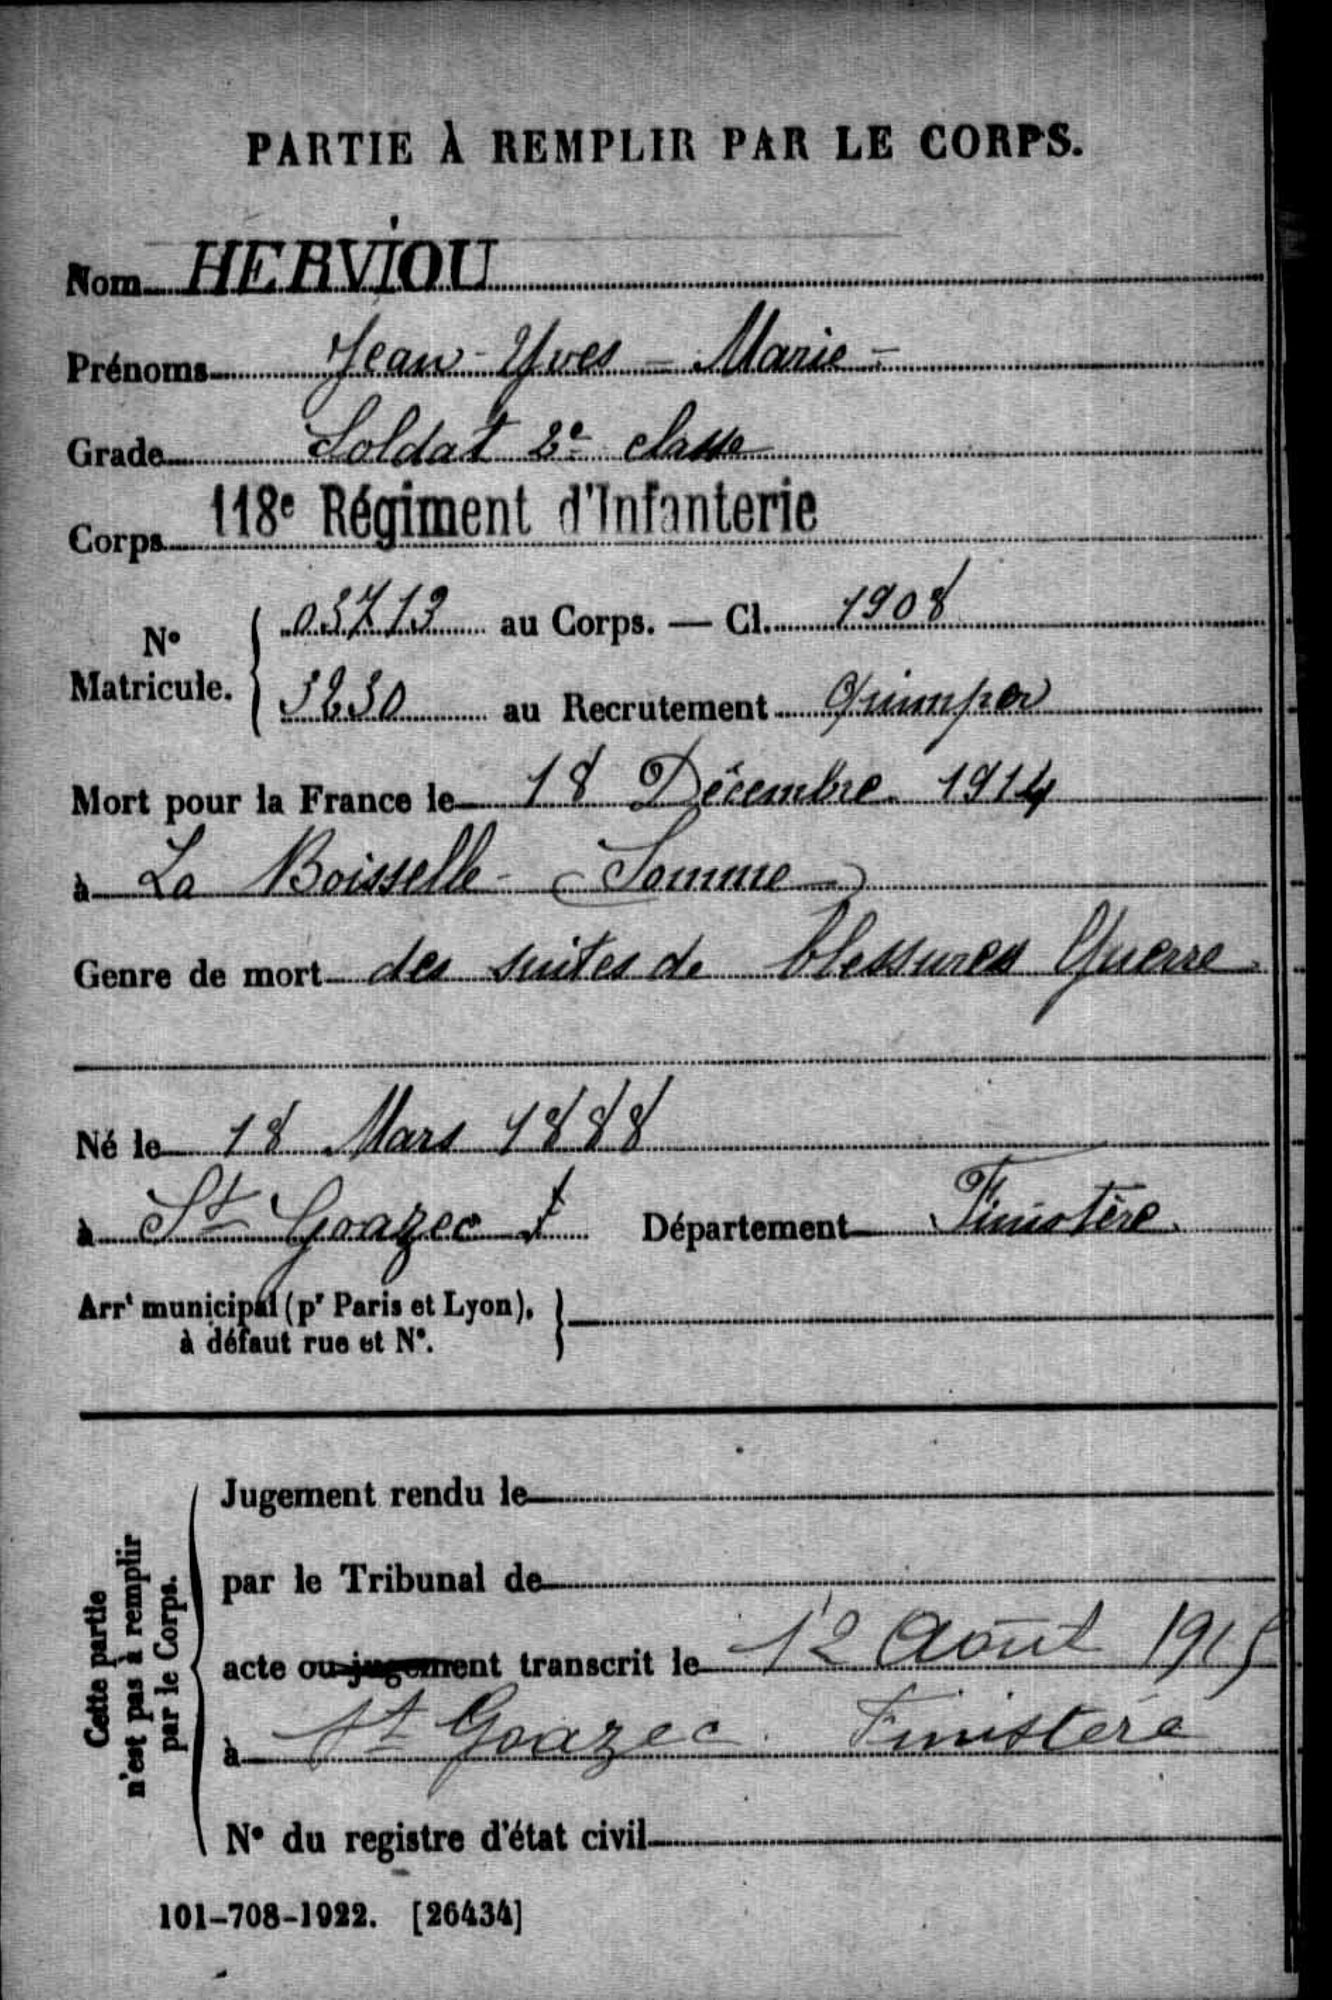 PARTIE À REMPLIR PAR LE CORPS.
Nom HERVIOU
Prénoms Jean - Yves - Marie -
Grade Soldat 2e classe
Corps 118e Régiment d'Infanterie
N° Matricule. 03713 au Corps. — Cl. 1908
3230 au Recrutement Quimper
Mort pour la France le 18 Décembre 1914
à La Boisselle - (Somme)
Genre de mort des suites de blessures Guerre
Né le 18 Mars 1888
à St Goazec Département Finistère
Arrt municipal (pr Paris et Lyon),
à défaut rue et N°.
Cette partie
n'est pas à remplir
par le Corps.
Jugement rendu le
par le Tribunal de
acte ou jugement transcrit le 12 Août 1915
à St Goazec. Finistère
N° du registre d'état civil
101-708-1922. [26434]